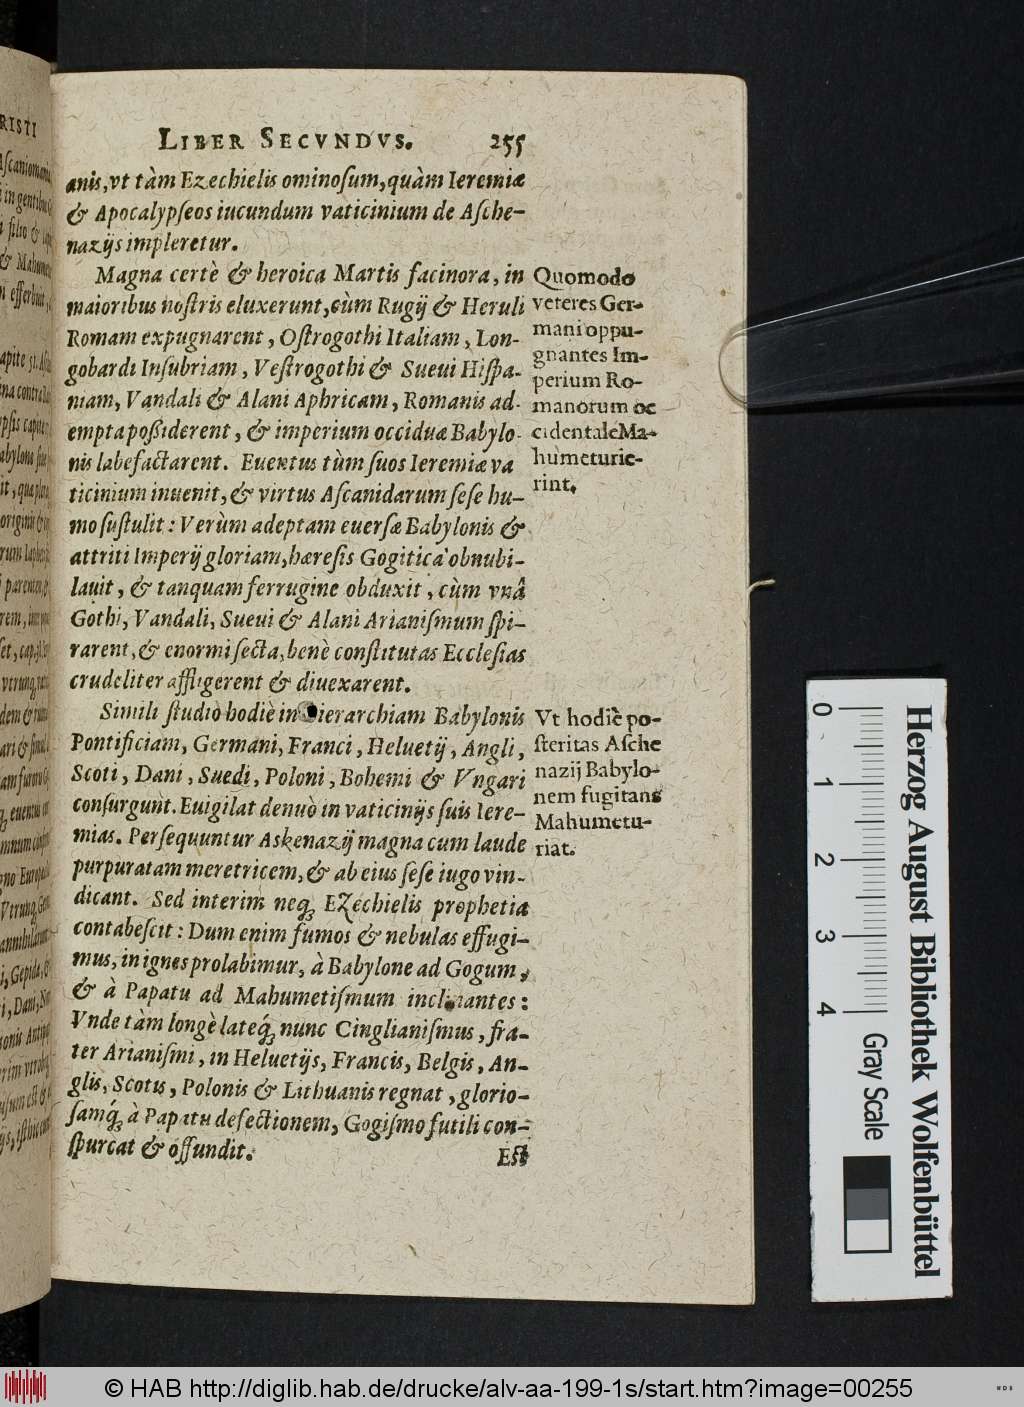 LIBER SECVNDVS. 255
anis, vt tàm Ezechielis ominoſum, quàm Ieremiæ
& Apocalypſeos iucundum vaticinium de Aſche-
nazijs impleretur.
Magna certè & heroica Martis facinora, in
maioribus noſtris eluxerunt, cùm Rugij & Heruli
Romam expugnarent, Oſtrogothi Italiam, Lon-
gobardi Inſubriam, Veſtrogothi & Sueui Hiſpa-
niam, Vandali & Alani Aphricam, Romanis ad-
empta poßiderent, & imperium occiduæ Babylo-
nis labefactarent. Euentus tùm ſuos Ieremiæ va
ticinium inuenit, & virtus Aſcanidarum ſeſe hu-
mo ſuſtulit: Verùm adeptam euerſæ Babylonis &
attriti Imperij gloriam, hæreſis Gogitica obnubi-
lauit, & tanquam ferrugine obduxit, cùm vnâ
Gothi, Vandali, Sueui & Alani Arianiſmum ſpi-
rarent, & enormi ſecta, benè conſtitutas Eccleſias
crudeliter affligerent & diuexarent.
Quomodo
veteres Ger-
mani oppu-
gnantes Im-
perium Ro-
manorum oc
cidentale Ma-
humeturie-
rint.
Simili ſtudio hodiè in ierarchiam Babylonis
Pontificiam, Germani, Franci, Heluetij, Angli,
Scoti, Dani, Suedi, Poloni, Bohemi & Vngari
conſurgunt. Euigilat denuò in vaticinijs ſuis Iere-
mias. Perſequuntur Askenazij magna cum laude
purpuratam meretricem, & ab eius ſeſe iugo vin-
dicant. Sed interim neq; EZechielis prophetia
contabeſcit: Dum enim fumos & nebulas effugi-
mus, in ignes prolabimur, à Babylone ad Gogum,
& à Papatu ad Mahumetiſmum inclinantes:
Vnde tàm longè lateq́; nunc Cinglianiſmus, fra-
ter Arianiſmi, in Heluetijs, Francis, Belgis, An-
glis, Scotis, Polonis & Lithuanis regnat, glorio-
ſamq́; à Papatu defectionem, Gogiſmo futili con-
ſpurcat & offundit.
Eſt
Vt hodiè po-
ſteritas Aſche
nazij Babylo-
nem fugitans
Mahumetu-
riat.
0 1 2 3 4
Herzog August Bibliothek Wolfenbüttel
Gray Scale
© HAB http://diglib.hab.de/drucke/alv-aa-199-1s/start.htm?image=00255